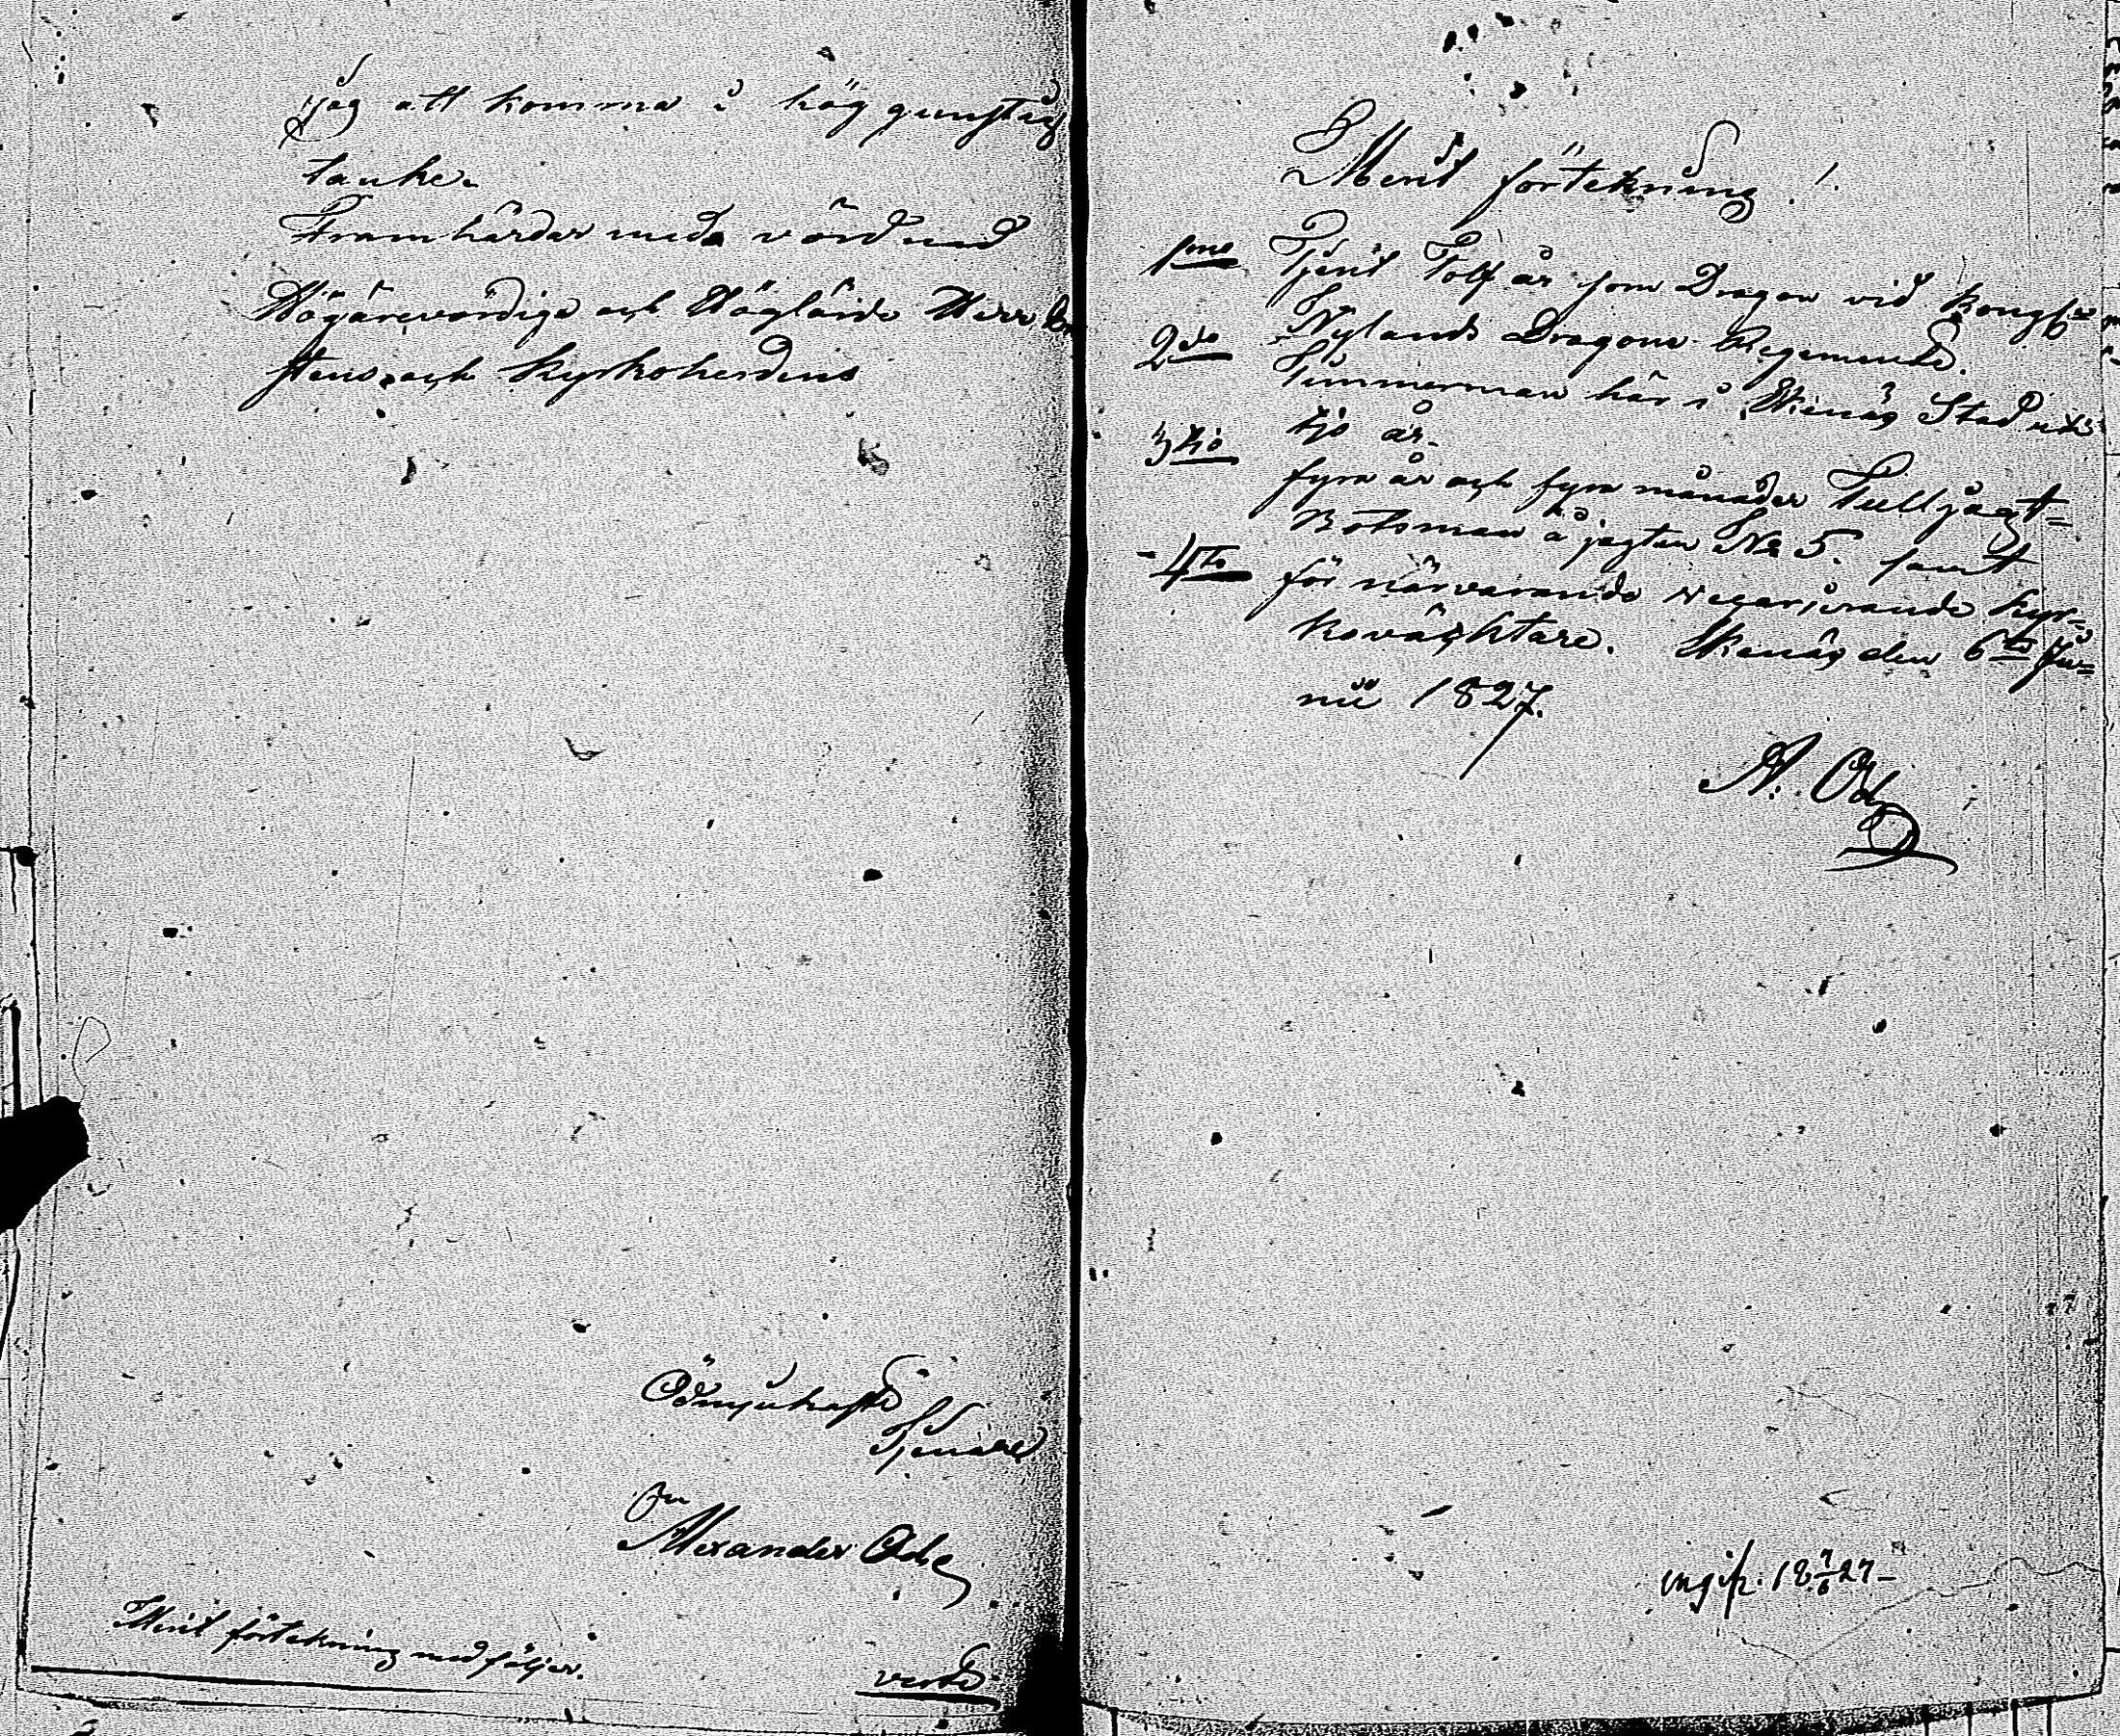 jag att komma i hög gunstig
tanke.
Framhärdar med vördnad
Högärevördige och Höglärde Herr
stens och Kyrkoherdens
Ödmjukaste
Tjenare
Alexander Öde
Merit förtekning medföljer.
verte
Merit förtekning!
1mo Tjent Tolf år som Dragon vid Kongl.
Nylands Dragone Regemente.
2do Timmerman här i Ekenäs Stad uti
tjo år.
3tio fyra år och fyra månader Tulljagt-
Botsman å jagten No 5. samt
4to för närvarande vicarierande Kyr-
kováchtare. Ekenäs den 6te Ju-
nii 1827.
A. Öd
ingifv. 18 7/6 27-